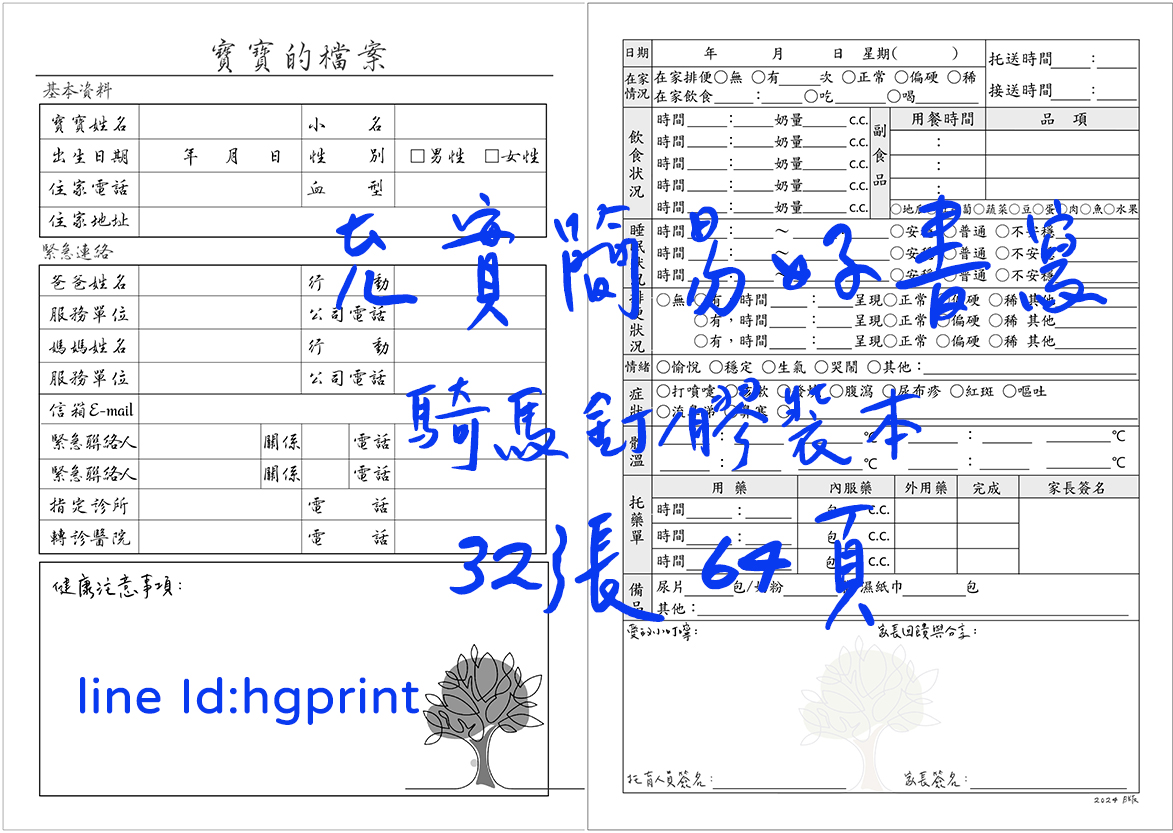 寶寶的檔案
基本資料
寶寶姓名 小名
出生日期 年 月 日 性別 □男性 □女性
住家電話 血型
住家地址
緊急連絡
爸爸姓名 行動
服務單位 公司電話
媽媽姓名 行動
服務單位 公司電話
信箱E-mail
緊急聯絡人 關係 電話
緊急聯絡人 關係 電話
指定診所 電話
轉診醫院 電話
健康注意事項：
line Id:hgprint
日期 年 月 日 星期( ) 托送時間____:____
在家情況 在家排便○無 ○有____次 ○正常 ○偏硬 ○稀
在家飲食____:____ ○吃____ ○喝____ 接送時間____:____
飲食狀況 副食品 用餐時間 品項
時間____:____奶量____c.c. :
時間____:____奶量____c.c.
時間____:____奶量____c.c. :
時間____:____奶量____c.c. :
時間____:____奶量____c.c. ○蔬菜○豆○蛋○肉○魚○水果
睡眠狀況
時間____:____~____:____ ○安穩 ○普通 ○不安穩
時間____:____~____:____ ○安穩 ○普通 ○不安穩
時間____:____~____:____ ○安穩 ○普通 ○不安穩
排便狀況
○無 ○有，時間____:____呈現○正常 ○偏硬 ○稀 其他____
○有，時間____:____呈現○正常 ○偏硬 ○稀 其他____
○有，時間____:____呈現○正常 ○偏硬 ○稀 其他____
情緒 ○愉悅 ○穩定 ○生氣 ○哭鬧 ○其他：____
症狀 ○打噴嚏 ○腹瀉 ○尿布疹 ○紅斑 ○嘔吐
體溫
____:____ ____℃ ____:____ ____℃
____:____ ____℃ ____:____ ____℃
托藥單 用藥 內服藥 外用藥 完成 家長簽名
時間____:____ 包 c.c.
時間____:____ 包 c.c.
時間____:____ 包 c.c.
備品 尿片____包/奶粉 濕紙巾____包
其他：____
愛的小叮嚀： 家長回饋與分享：
托育人員簽名： 家長簽名：
充實簡易好書寫
騎馬釘/膠裝本
32張 64頁